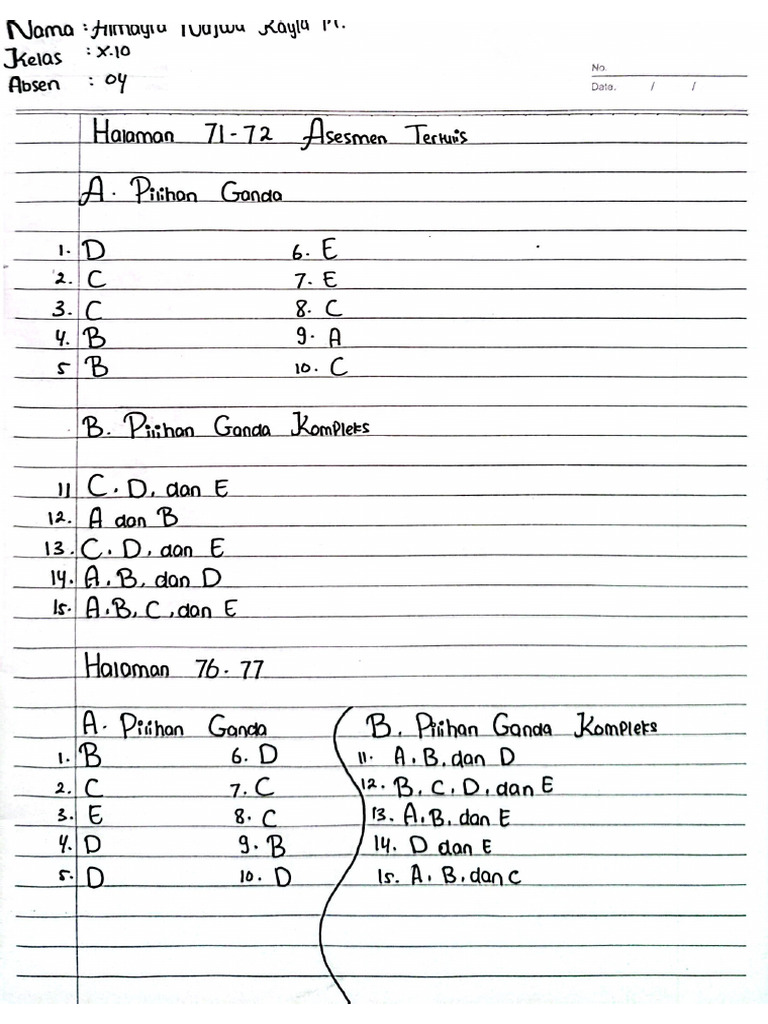 Nama :
Kelas : X.10
Absen : 04
No.
Date. / /
Halaman 71-72 Asesmen Tertulis
A. Pilihan Ganda
1. D 6. E
2. C 7. E
3. C 8. C
4. B 9. A
5 B 10. C
B. Pilihan Ganda Kompleks
11 C. D, dan E
12. A dan B
13. C. D, dan E
14. A, B, dan D
15. A, B, C, dan E
Halaman 76-77
A. Pilihan Ganda
1. B 6. D
2. C 7. C
3. E 8. C
4. D 9. B
5. D 10. D
B. Pilihan Ganda Kompleks
11. A, B, dan D
12. B, C, D, dan E
13. A, B, dan E
14. D dan E
15. A, B, dan C